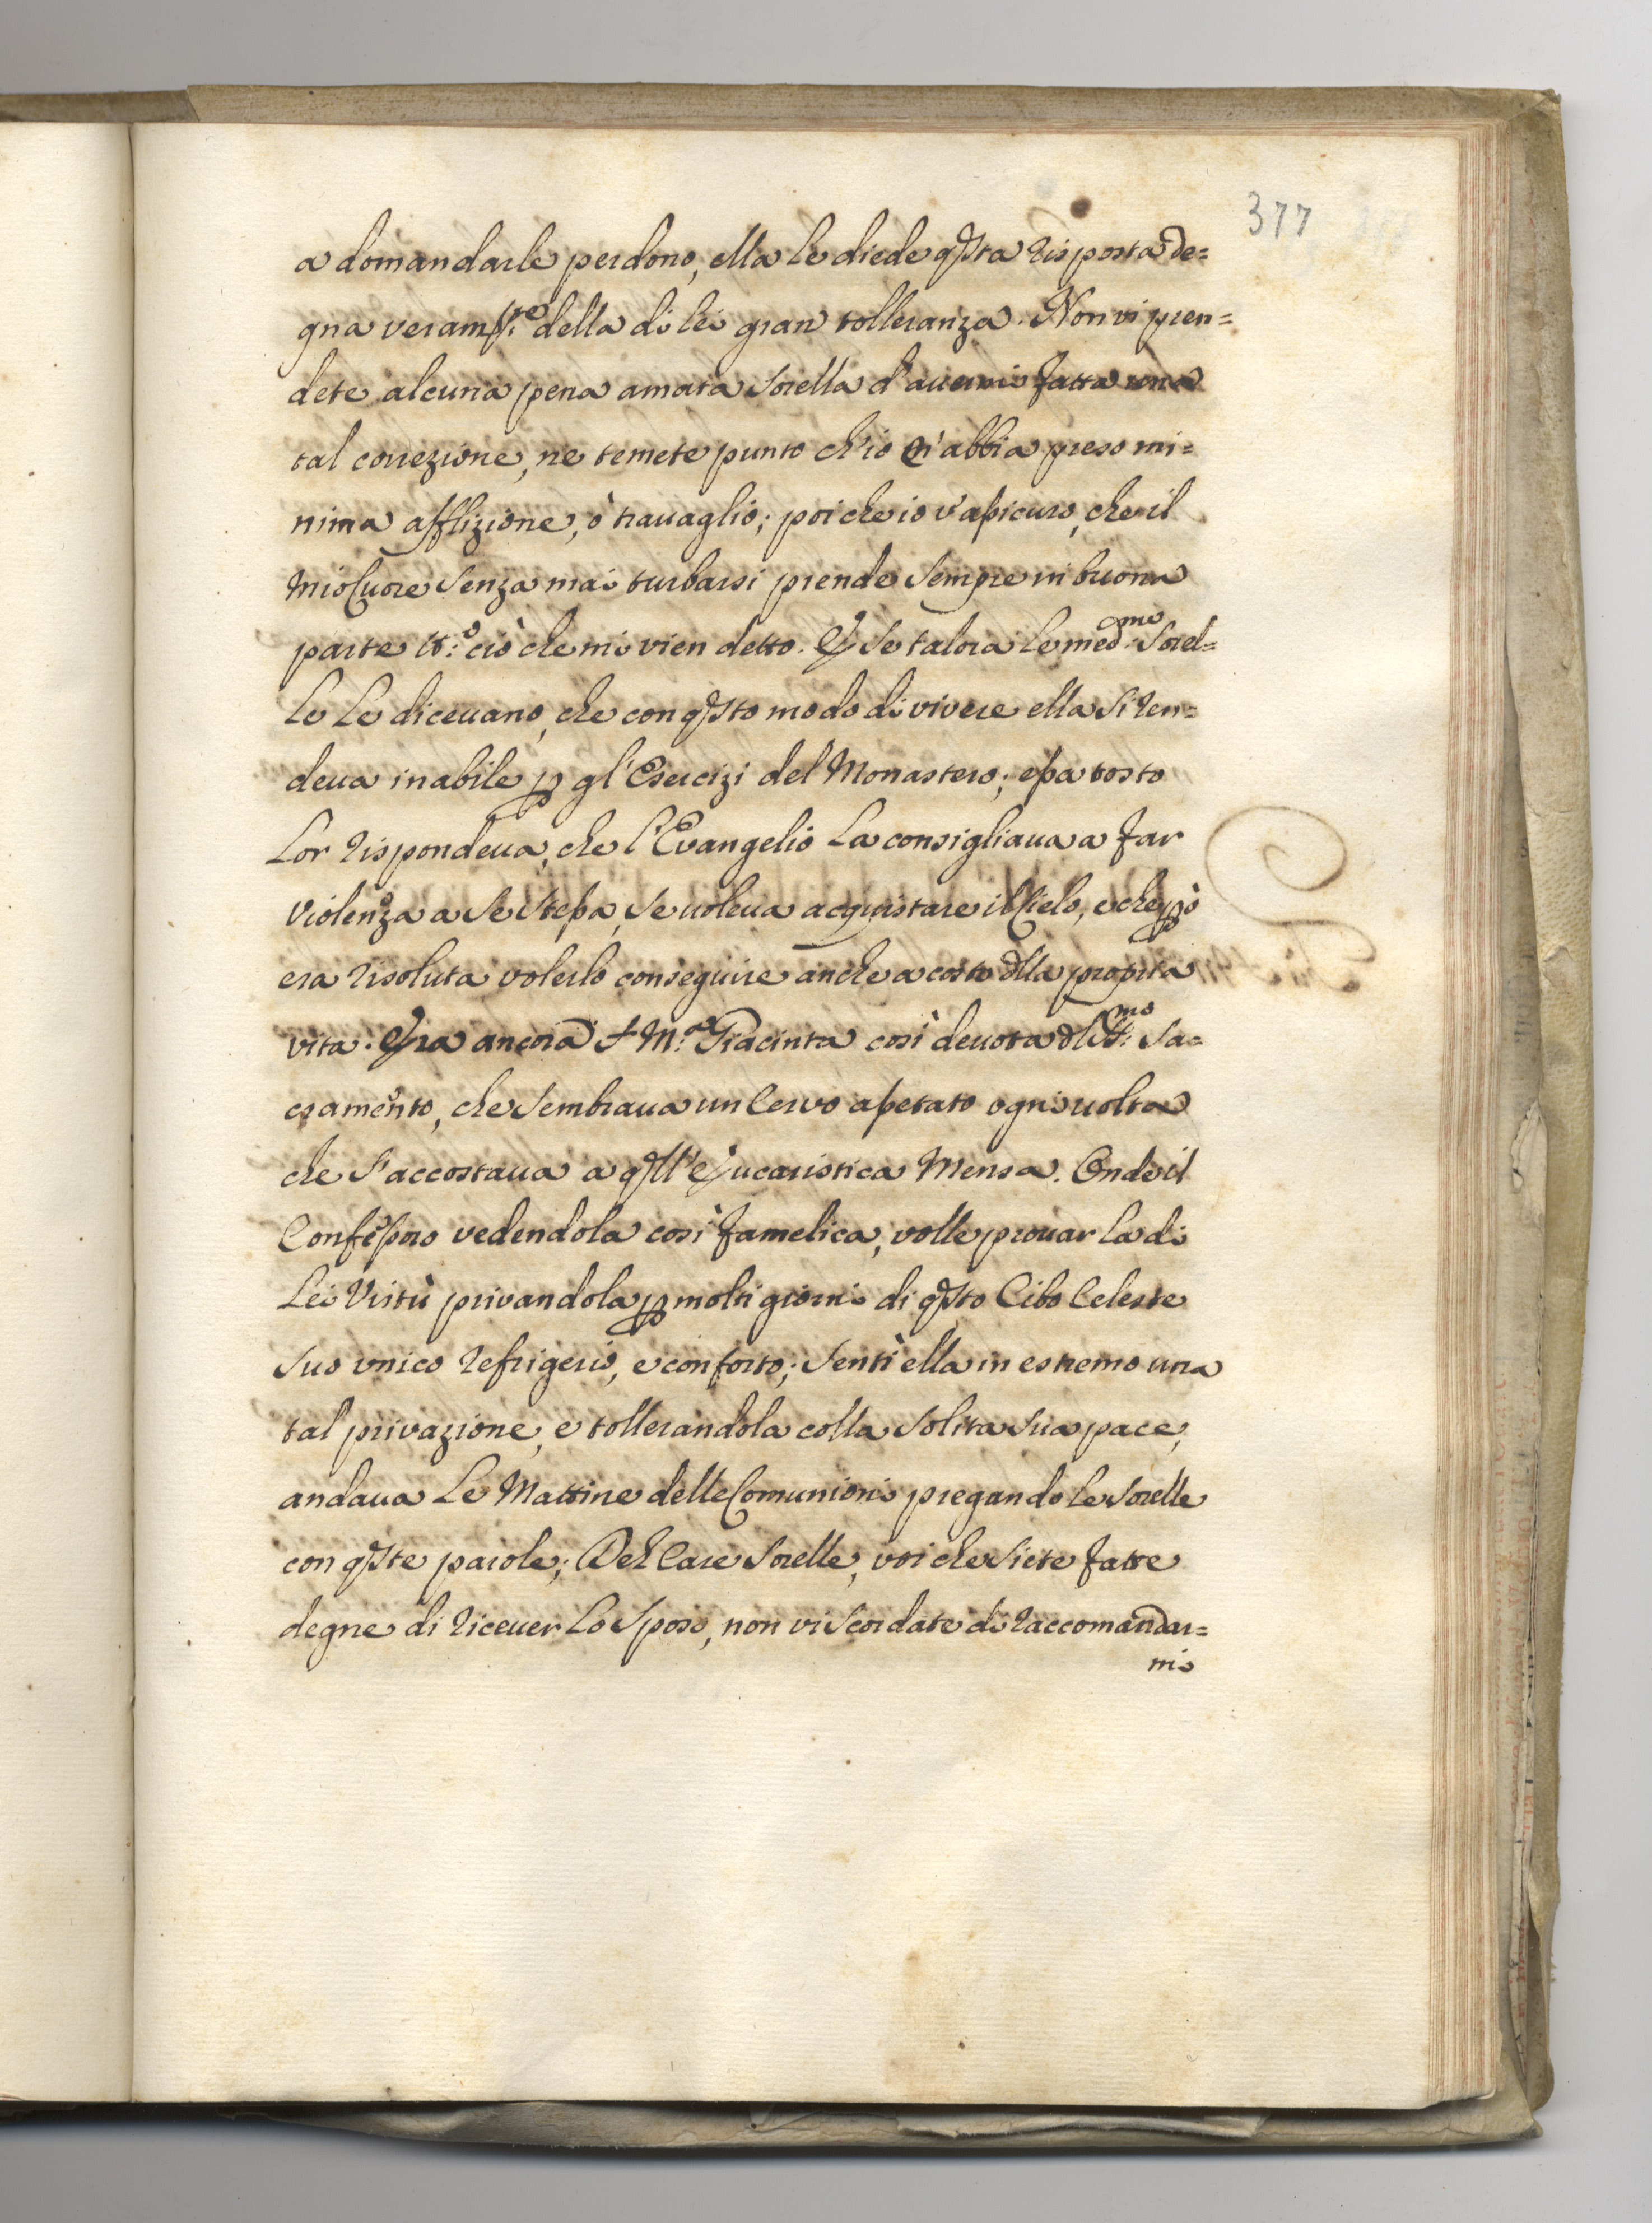 377
a domandarle perdono, ella le diede qsta risposta de=
gna veram.te della di lei gran tolleranza. Non vi pren=
dete alcuna pena amata Sorella d'auermi fatta una
tal correzione, ne temete punto ch'io n'abbia preso mi=
nima afflizione, ò trauaglio; poi che io v'assicuro, che il
mio Cuore Senza mai turbarsi prende Sempre in buona
parte tt.o ciò che mi vien detto. E Se talora le med.me Sorel=
le le diceuano, che con qsto modo di vivere ella Si ren=
deua inabile p gl'Esercizi del Monastero; essa tosto
Lor rispondeua, che l'Evangelio La consigliaua a far
violenza a Se Stessa, Se uoleua acquistare il Cielo, e che pò
era risoluta volerlo conseguire anche a costo dlla propria
vita. Era ancora S. M.a Giacinta così deuota dl SS.mo Sa=
cramento, che Sembraua un Cervo assetato ogni uolta
che S'accostaua a qll'Eucaristica Mensa. Onde il
Confessoro vedendola così famelica, volle prouar la di
Lei Virtù privandola p molti giorni di qsto Cibo Celeste
Suo vnico refrigerio, e conforto; Sentì ella in estremo una
tal privazione, e tollerandola colla Solita Sua pace,
andaua Le Mattine delle Comunioni pregando le Sorelle
con qste parole; Deh Care Sorelle, voi che Siete fatte
degne di riceuer Lo Sposo, non vi Scordate di raccomandar=
mi